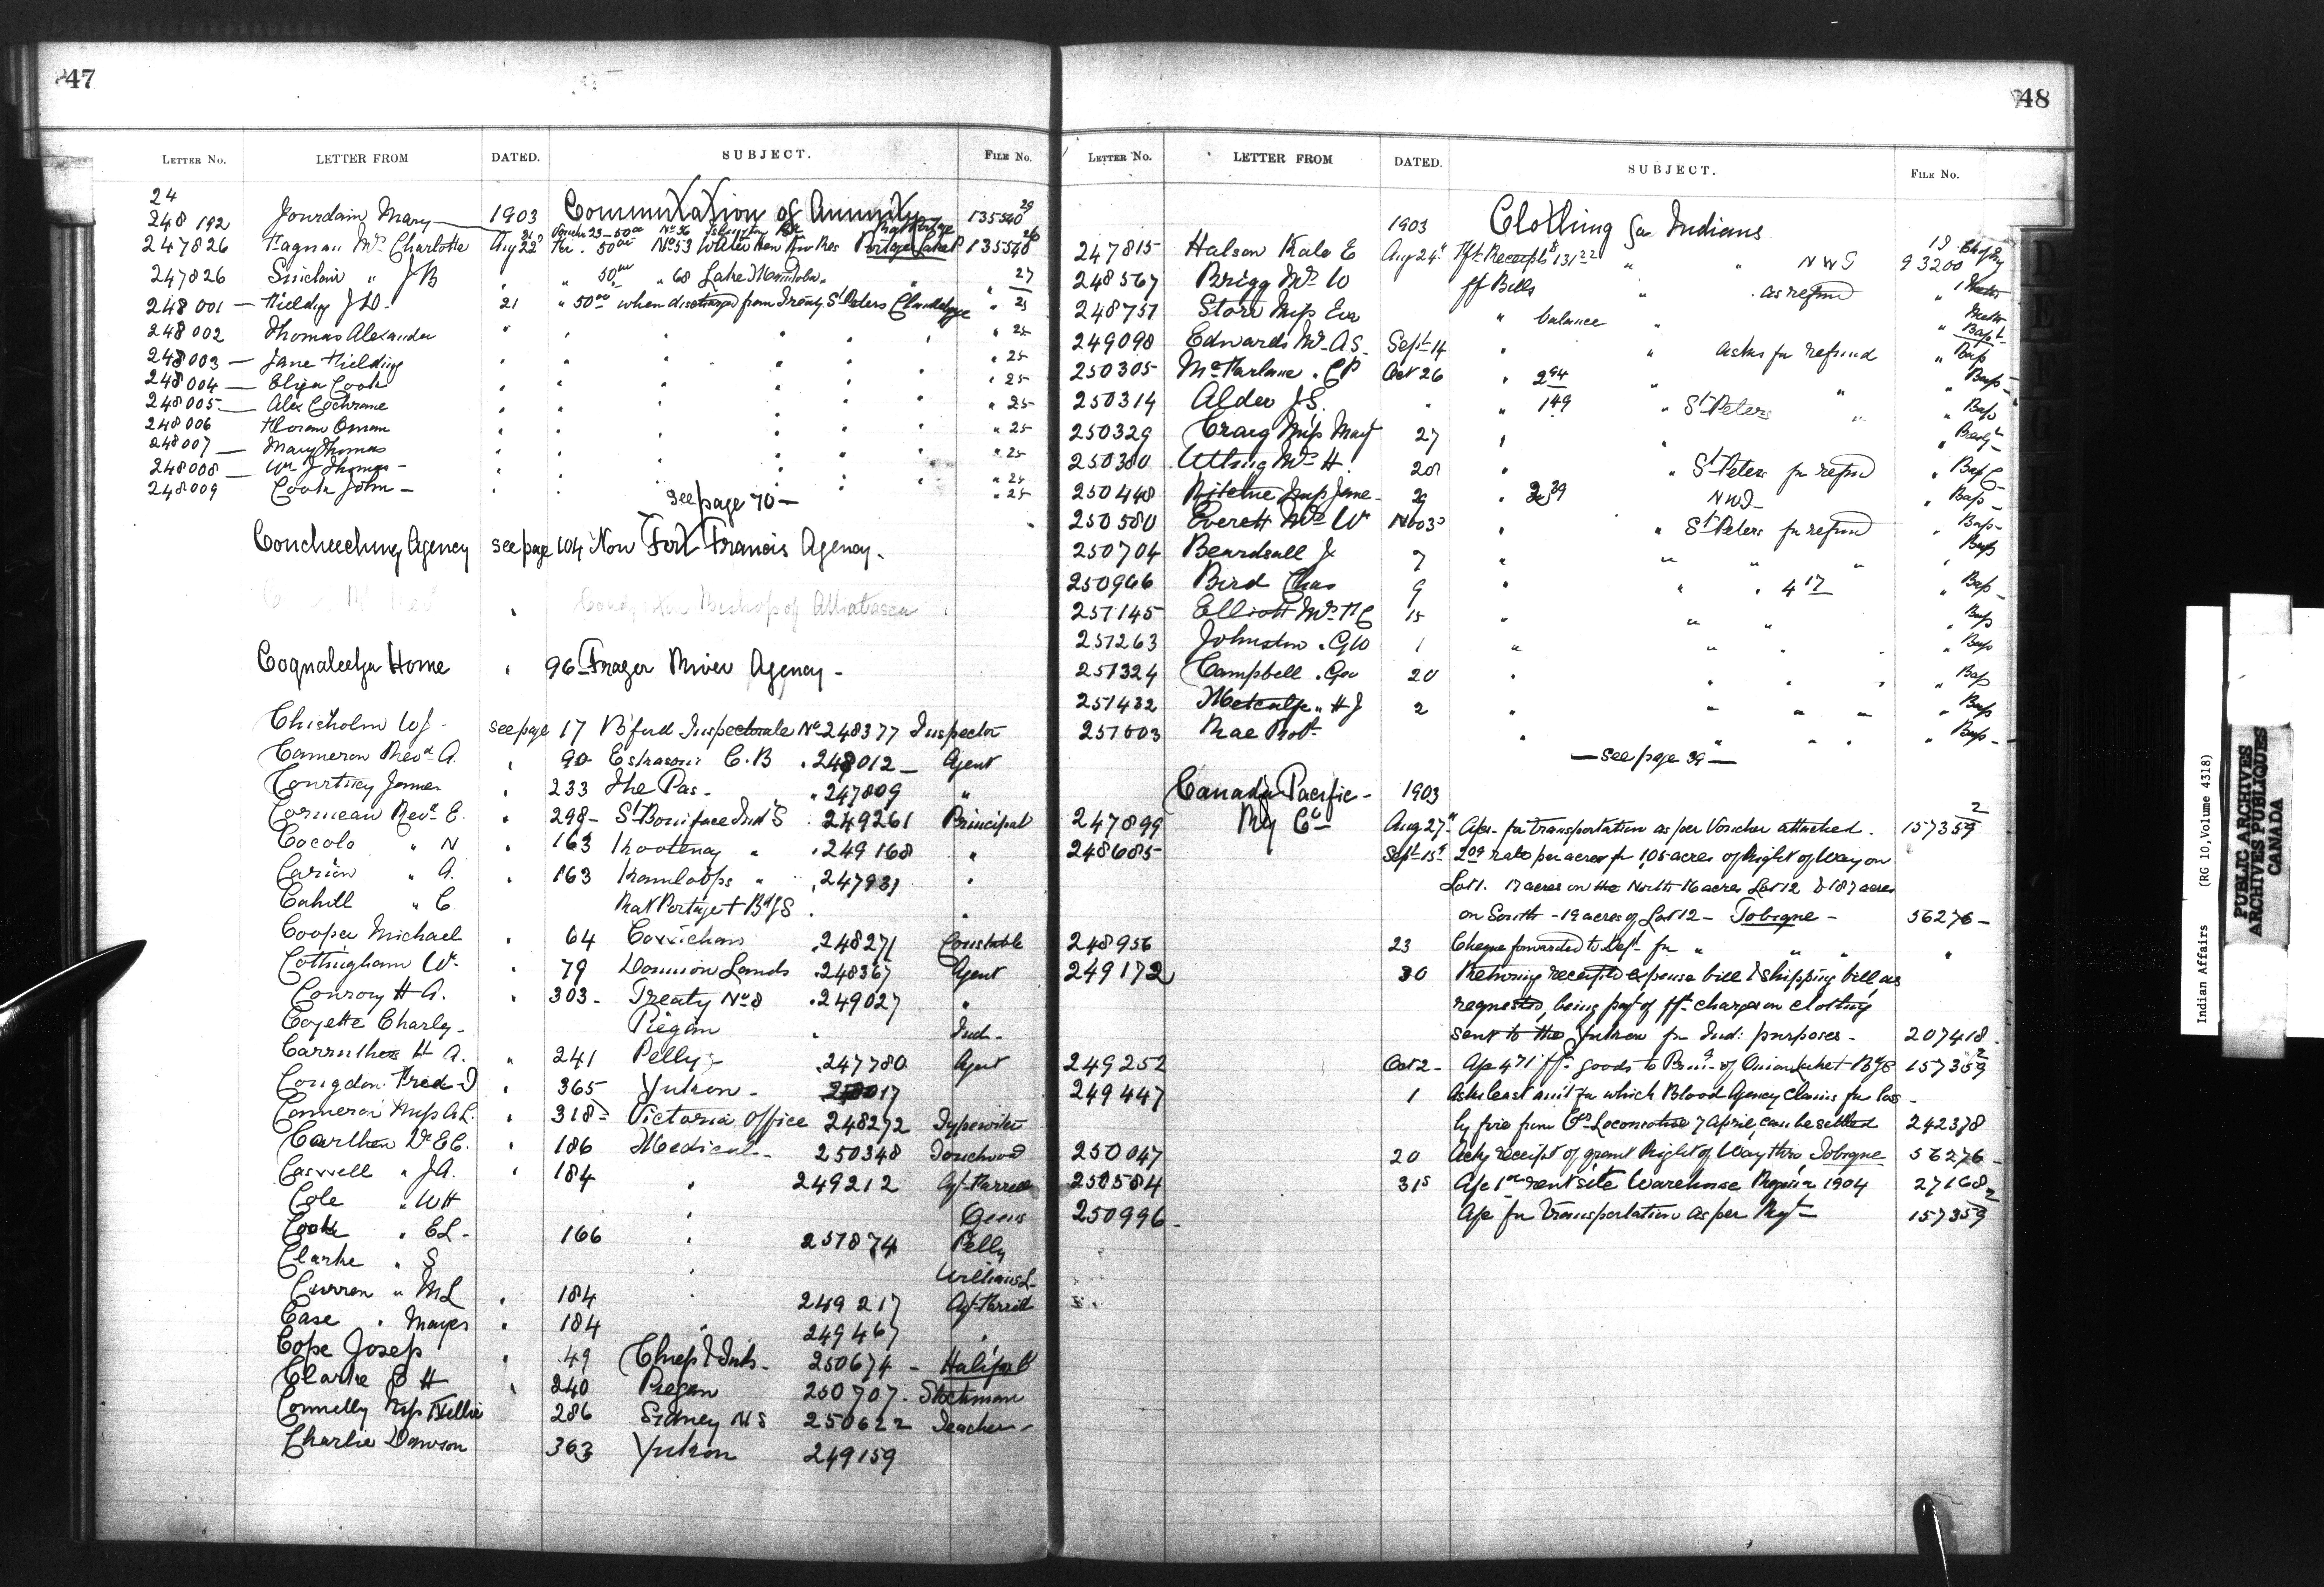 47
LETTER No. LETTER FROM DATED. SUBJECT. FILE No.
24
248192 Jourdain Mary 1903 Commutation of Annuity 135540 29
247826 Mrs Charlotte Aug 22 50 00 No 53 135548 26
247826 Sinclair " J B " 50 00 " 68 Lake Manitoba " " 27
248001 — Fielding J D. 21 " 50 00 when discharged from Treaty St Peters Clandeboye " 25
248002 Thomas Alexander " " 25
248003 — Jane Fielding " 25
248004 — Eliza Cook " 25
248005 — Alex Cochrane " 25
248006 " 25
248007 — Mary Thomas " 25
248008 — Wm J Thomas - " 25
248009 Cook John - " 25
see page 70 —
Coucheeching Agency see page 104 Now Fort Francis Agency -
Bishop of Athabasca
Coqualeetza Home " 96 — Frazer River Agency -
Chisholm W J - see page 17 B'ford Inspectorate No 248377 Inspector
Cameron Revd A. " 90 C. B " 248012 — Agent
Courtney James " 233 The Pas - " 247809 "
Cormeau Revd E. " 298 - St Boniface Ind S " 249261 Principal
Cocolo " N " 163 Kootenay " " 249168 "
Carion " A. " 163 Kamloops " " 247931 "
Cahill " C Rat Portage + Bdg S . "
Cooper Michael " 64 Cowichan " 248271 Constable
Cottingham W. " 79 Dominion Lands " 248367 Agent
Conroy H A. " 303 - Treaty No 8 " 249027 "
Coyette Charly - Piegan " Ind -
Carruthers H A. " 241 Pelly - " 247780 Agent
Congdon Fred D " 365 Yukon -
Cameron Miss A L. " 318 - Victoria Office 248272 Typewriter
Carthew Dr E C. " 186 Medical - 250348 Touchwood
Caswell " J A. " 184 " 249212
Cole " W H "
Cook " E L - 166 " 251874 Pelly
Clarke " S "
Curren " M L " 184 " 249217
Case " Mayes " 184 " 249467 "
Cope Joseph " 49 Chiefs & Inds - 250674 - Halifax C
Clarke E H " 240 Piegan 250707 . Stockman
Connelly Miss Nellie 286 Sidney N S 250622 Teacher -
Charlie Dawson 363 Yukon 249159
48
LETTER No. LETTER FROM DATED. SUBJECT. FILE No.
1903 Clothing for Indians
247815 Halson Kate E Aug 24 " " N W T 93200
248567 Brigg Mrs W ff Bills " as refund "
248751 Storr Miss Eva " balance " "
249098 Edwards Mrs A S. Sept 14 " " Asks for refund "
250305 McFarlane . C P Oct 26 " 2 94 " " "
250314 Alder J S. " " 1 49 " St Peters " "
250329 Craig Miss May 27 " "
250380 Utting Mrs H. 28 " " St Peters for refund "
250448 Ritchie Miss Jane - 29 " 2 39 N W T - "
250580 Everett Mrs W Nov 3 " " St Peters for refund "
250704 Beardsall J 7 " " " "
250966 Bird Chas 9 " " " 4 17 "
251145 Elliott Mrs H C 15 " " " "
251263 Johnston . G W 1 " " " "
251324 Campbell . Geo 20 " " " "
251432 Metcalfe " H J 2 " " " "
251603 Rae Robt " " " "
— see page 39 —
Canada Pacific - 1903
247899 Ry Co — Aug 27 Apes - for transportation as per Voucher attached . 157359 2
248685 Sept 15 2 09 rate per acre for 1.05 acres of Right of Way on
Lot 1. 17 acres on the North 16 acres Lot 12 & 187 acres
on South - 19 acres of Lot 12 — Tobique - 56276 -
248956 23 Cheque forwarded to Dept for " " " "
249172 30 Returning receipted expense bill & shipping bill as
requested, being part of fft charges on clothing
sent to the Yukon for Ind: purposes - 207418 .
249252 Oct 2 - Ape 4 71 fft goods to Prin. of Onion Lake Bdg S 157359 2
249447 1 Asks least amt for which Blood Agency Claims for loss -
by fire from Co's Locomotive 7 April, can be settled 242378
250047 20 Ackg receipt of grant Right of Way thro Tobique 56276 -
250584 31 Ape 1 00 rent site Warehouse Regina 1904 27168 2
250996 - Ape for Transportation as per 157359
Indian Affairs (RG 10, Volume 4318)
PUBLIC ARCHIVES
ARCHIVES PUBLIQUES
CANADA